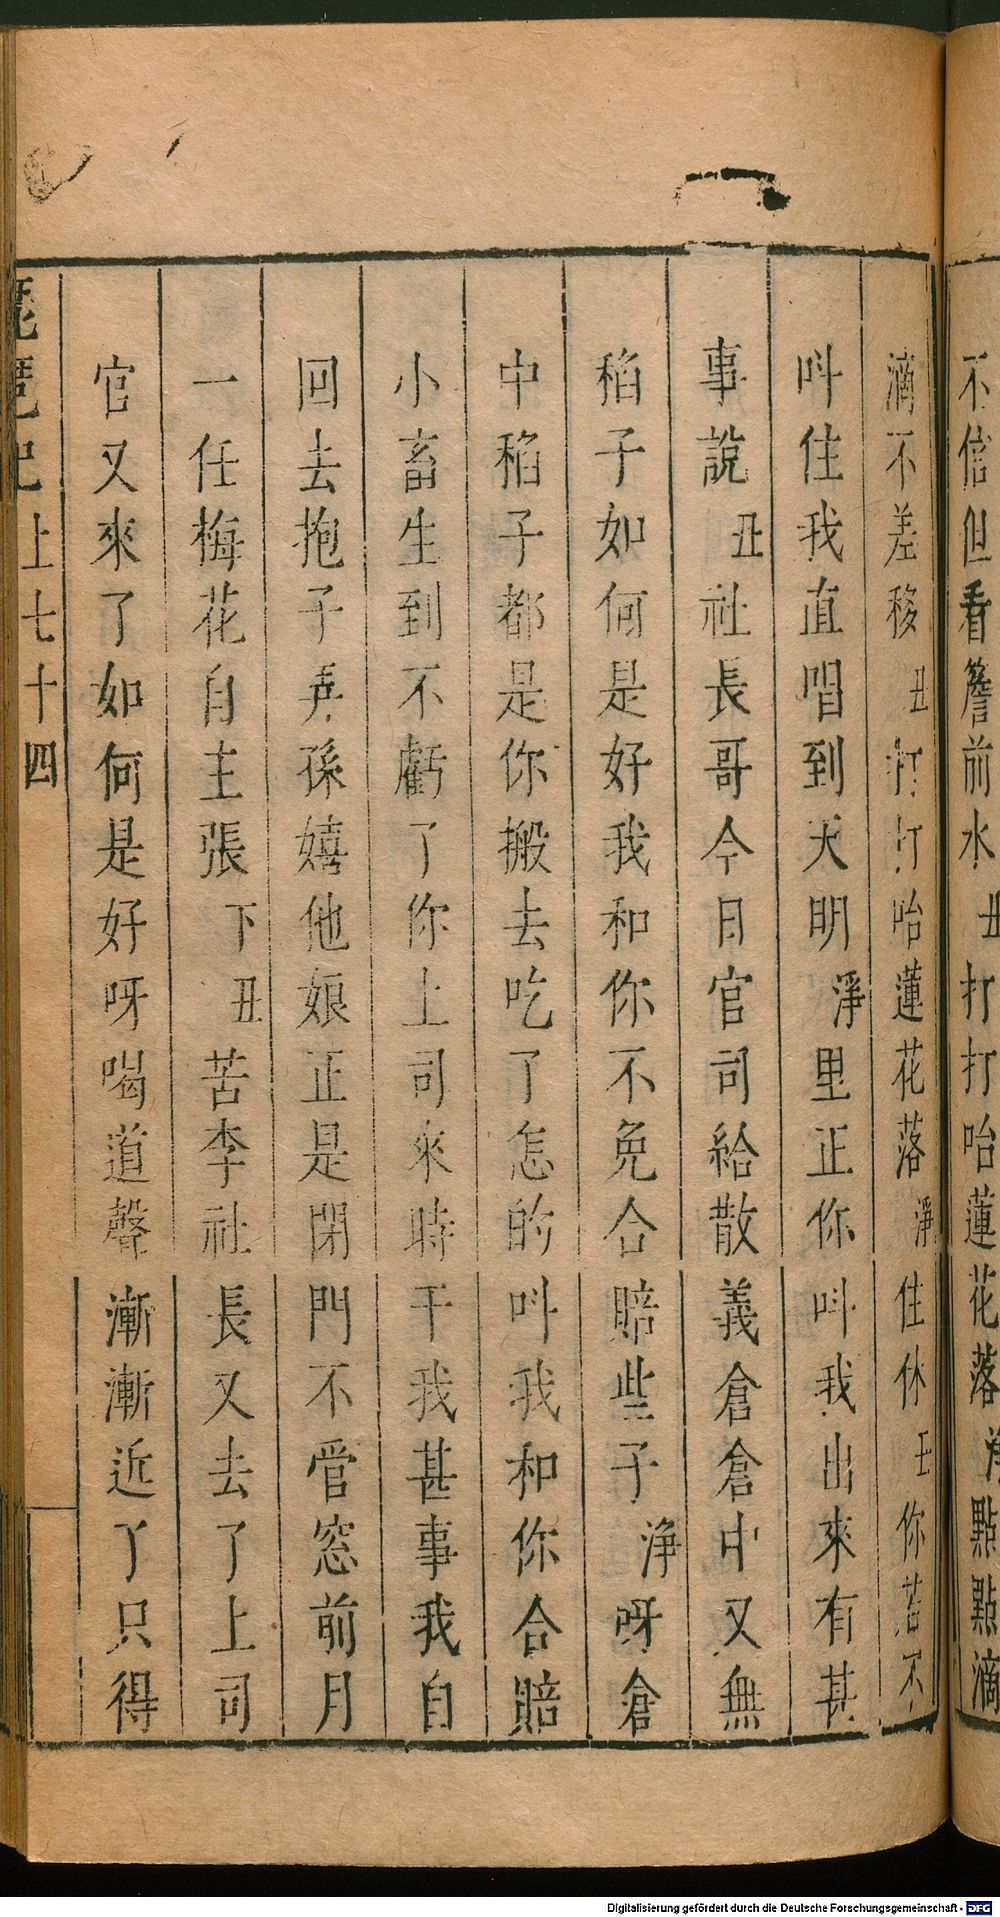 不信但看簷前水丑打打咍蓮花落淨點點滴
滴不差移丑打打咍蓮花落淨住休丑你若不
呌住我直唱到天明淨里正你呌我出來有甚
事說丑社長哥今日官司給散義倉倉中又無
稻子如何是好我和你不免合賠些子淨呀倉
中稻子都是你搬去吃了怎的呌我和你合賠
小畜生到不虧了你上司來時干我甚事我自
回去抱子弄孫嬉他娘正是閉門不管窓前月
一任梅花自主張下丑苦李社長又去了上司
官又來了如何是好呀喝道聲漸漸近了只得
琵琶記上七十四
Digitalisierung gefördert durch die Deutsche Forschungsgemeinschaft - DFG